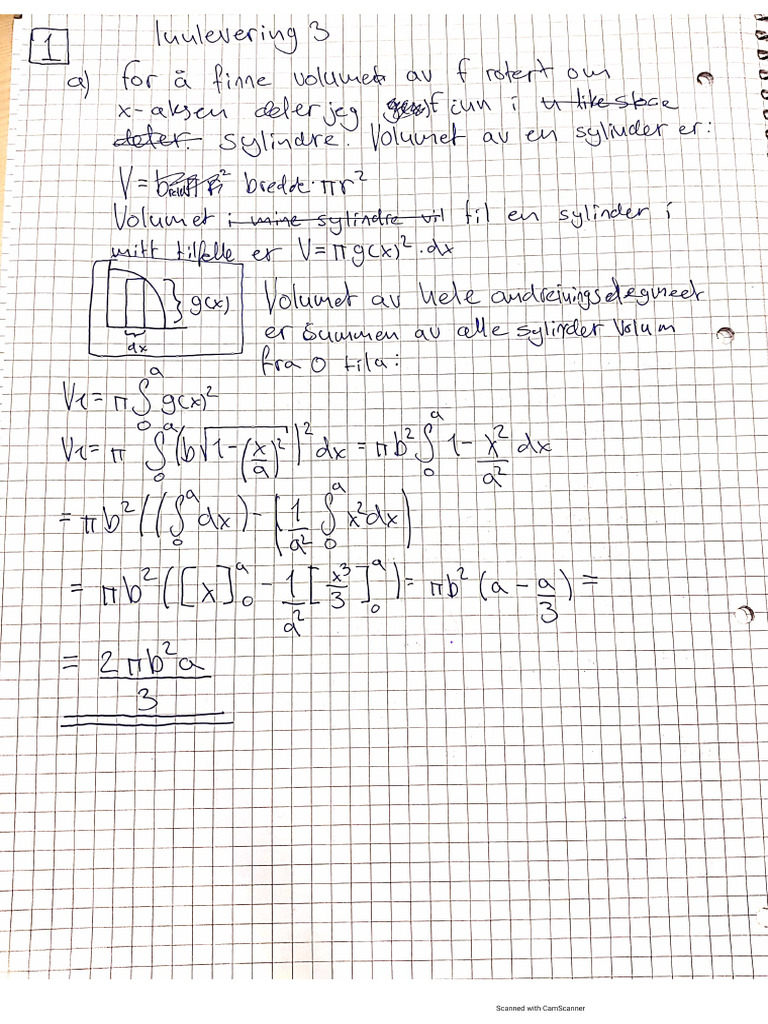 Innlevering 3
1
a) for å finne volumet av f rotert om
x-aksen deler jeg f inn i u like store
deler. sylindre. Volumet av en sylinder er:
V = bredde·πr²
Volumet i mine sylindre vil til en sylinder i
mitt tilfelle er V=πg(x)²·dx
g(x)
dx
Volumet av hele omdreiningslegmeet
er summen av alle sylinder volum
fra 0 til a:
V₁ = π∫₀ᵃ g(x)²
V₁ = π ∫₀ᵃ (b√(1-(x/a)²))² dx = πb² ∫₀ᵃ 1 - x²/a² dx
= πb² ((∫₀ᵃ dx) - (1/a² ∫₀ᵃ x²dx)
= πb² ([x]₀ᵃ - 1/a² [x³/3]₀ᵃ) = πb² (a - a/3) =
= 2πb²a/3
Scanned with CamScanner